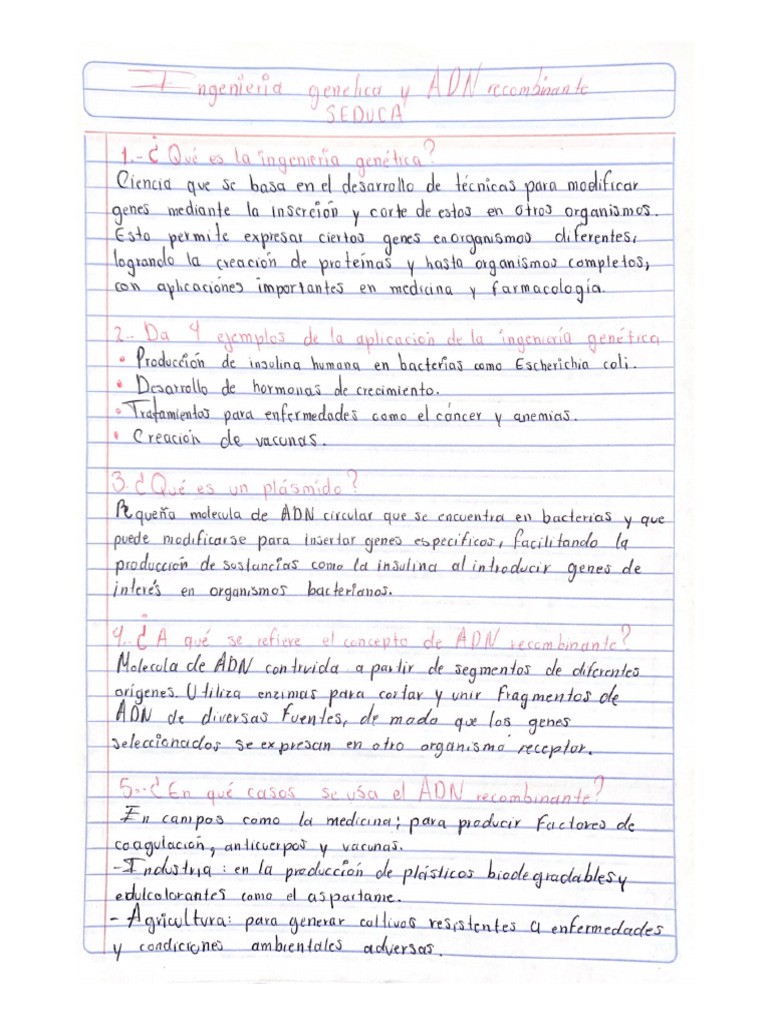 Ingenieria genetica y ADN recombinante
SEDUCA
1.- ¿Qué es la ingeniería genética?
Ciencia que se basa en el desarrollo de técnicas para modificar
genes mediante la inserción y corte de estos en otros organismos.
Esto permite expresar ciertos genes en organismos diferentes,
logrando la creación de proteínas y hasta organismos completos,
con aplicaciones importantes en medicina y farmacología.
2.. Da 4 ejemplos de la aplicación de la ingeniería genética
• Producción de insulina humana en bacterias como Escherichia coli.
• Desarrollo de hormonas de crecimiento.
• Tratamientos para enfermedades como el cáncer y anemias.
• Creación de vacunas.
3. ¿Qué es un plásmido?
Pequeña molecula de ADN circular que se encuentra en bacterias y que
puede modificarse para insertar genes especificos, facilitando la
producción de sustancias como la insulina al introducir genes de
interés en organismos bacterianos.
4.. ¿A qué se refiere el concepto de ADN recombinante?
Molecula de ADN contruida a partir de segmentos de diferentes
orígenes. Utiliza enzimas para cortar y unir fragmentos de
ADN de diversas fuentes, de modo que los genes
seleccionados se expresan en otro organismo receptor.
5.-¿En qué casos se usa el ADN recombinante?
En campos como la medicina; para producir factores de
coagulación, anticuerpos y vacunas.
-Industria: en la producción de plásticos biodegradables y
edulcolorantes como el aspartame.
- Agricultura: para generar cultivos resistentes a enfermedades
y condiciones ambientales adversas.